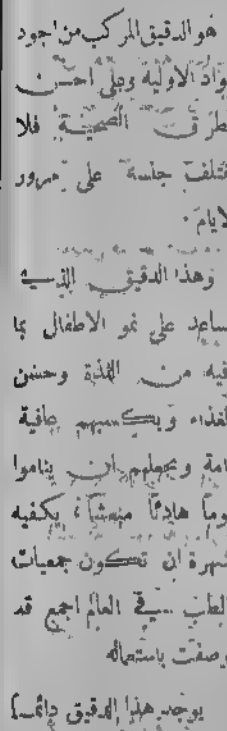 هو الدقيق المركب من اجود
واد الاولية وعلى احسن
لطرق الصحية فلا
تتلف على مرور
لايام .
وهذا الدقيق
ساعد على نمو الاطفال بما
فيه من اللذة وحسن
لغذاء ويكسبهم عافية
امة ويجعلهم ان يناموا
وماً هادئاً منعشاً ، يكفيه
شهرة ان تكون جمعيات
لطب في العالم اجمع قد
وصفت باستعماله
يوجد هذا الدقيق دائما